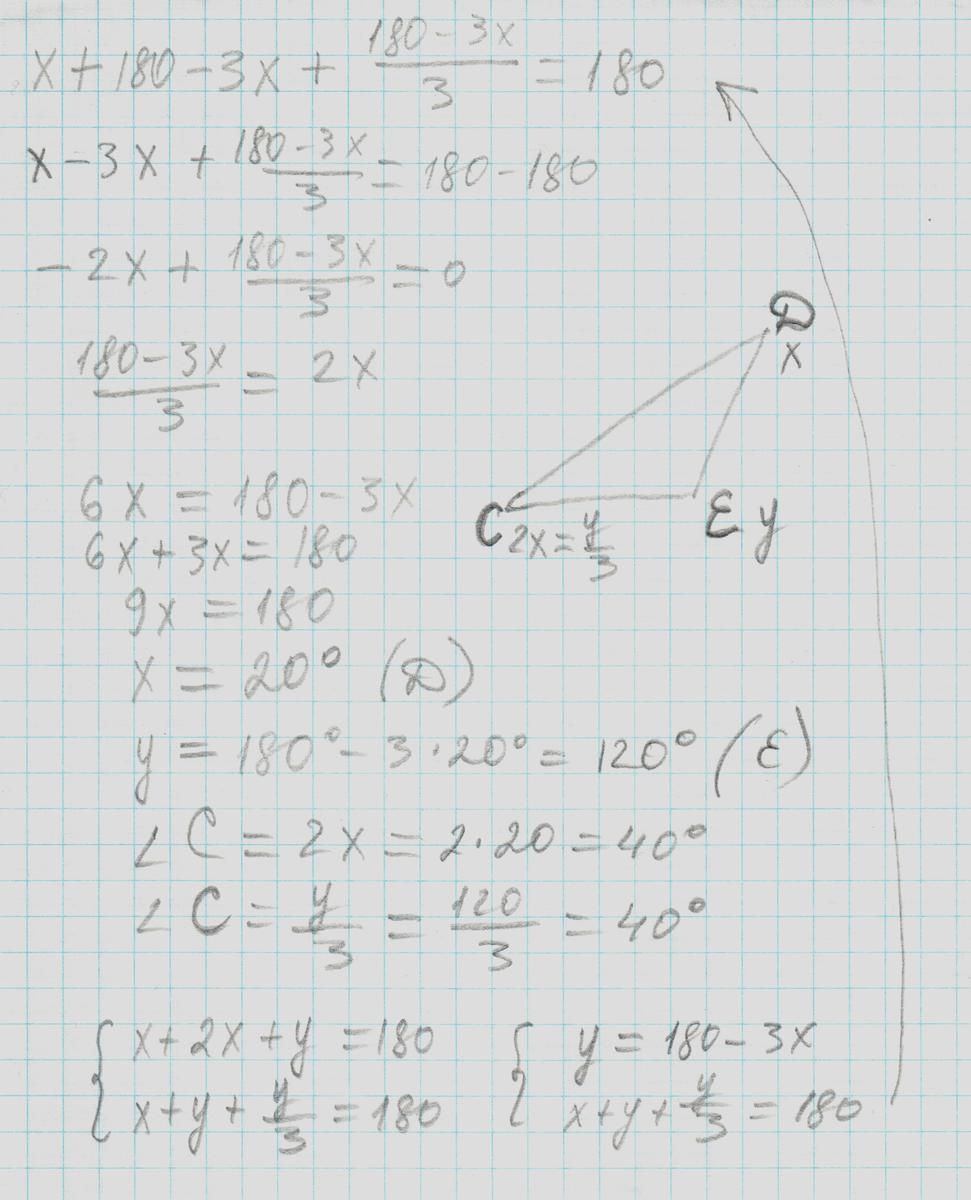 x + 180 - 3x + (180 - 3x)/3 = 180
x - 3x + (180 - 3x)/3 = 180 - 180
- 2x + (180 - 3x)/3 = 0
(180 - 3x)/3 = 2x
D
x
C 2x = y/3
E y
6x = 180 - 3x
6x + 3x = 180
9x = 180
x = 20° (D)
y = 180° - 3 · 20° = 120° (E)
∠ C = 2x = 2 · 20 = 40°
∠ C = y/3 = 120/3 = 40°
{ x + 2x + y = 180
x + y + y/3 = 180
{ y = 180 - 3x
x + y + y/3 = 180